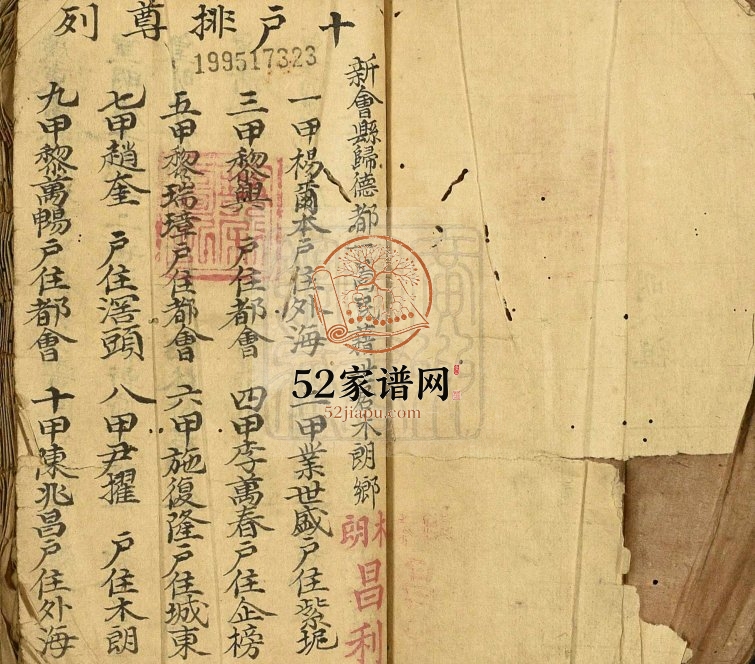 十戶排尊列
199517323
新會縣歸德都一
木朗鄉
一甲楊爾本戶住外海
二甲業世盛戶住紫坭
三甲黎興 戶住都會
四甲李萬春戶住企榜
五甲黎瑞璋戶住都會
六甲施復隆戶住城東
七甲趙奎 戶住滘頭
八甲尹擢 戶住木朗
九甲黎萬暢戶住都會
十甲陳兆昌戶住外海
52家谱网
52jiapu.com
林朗
昌利